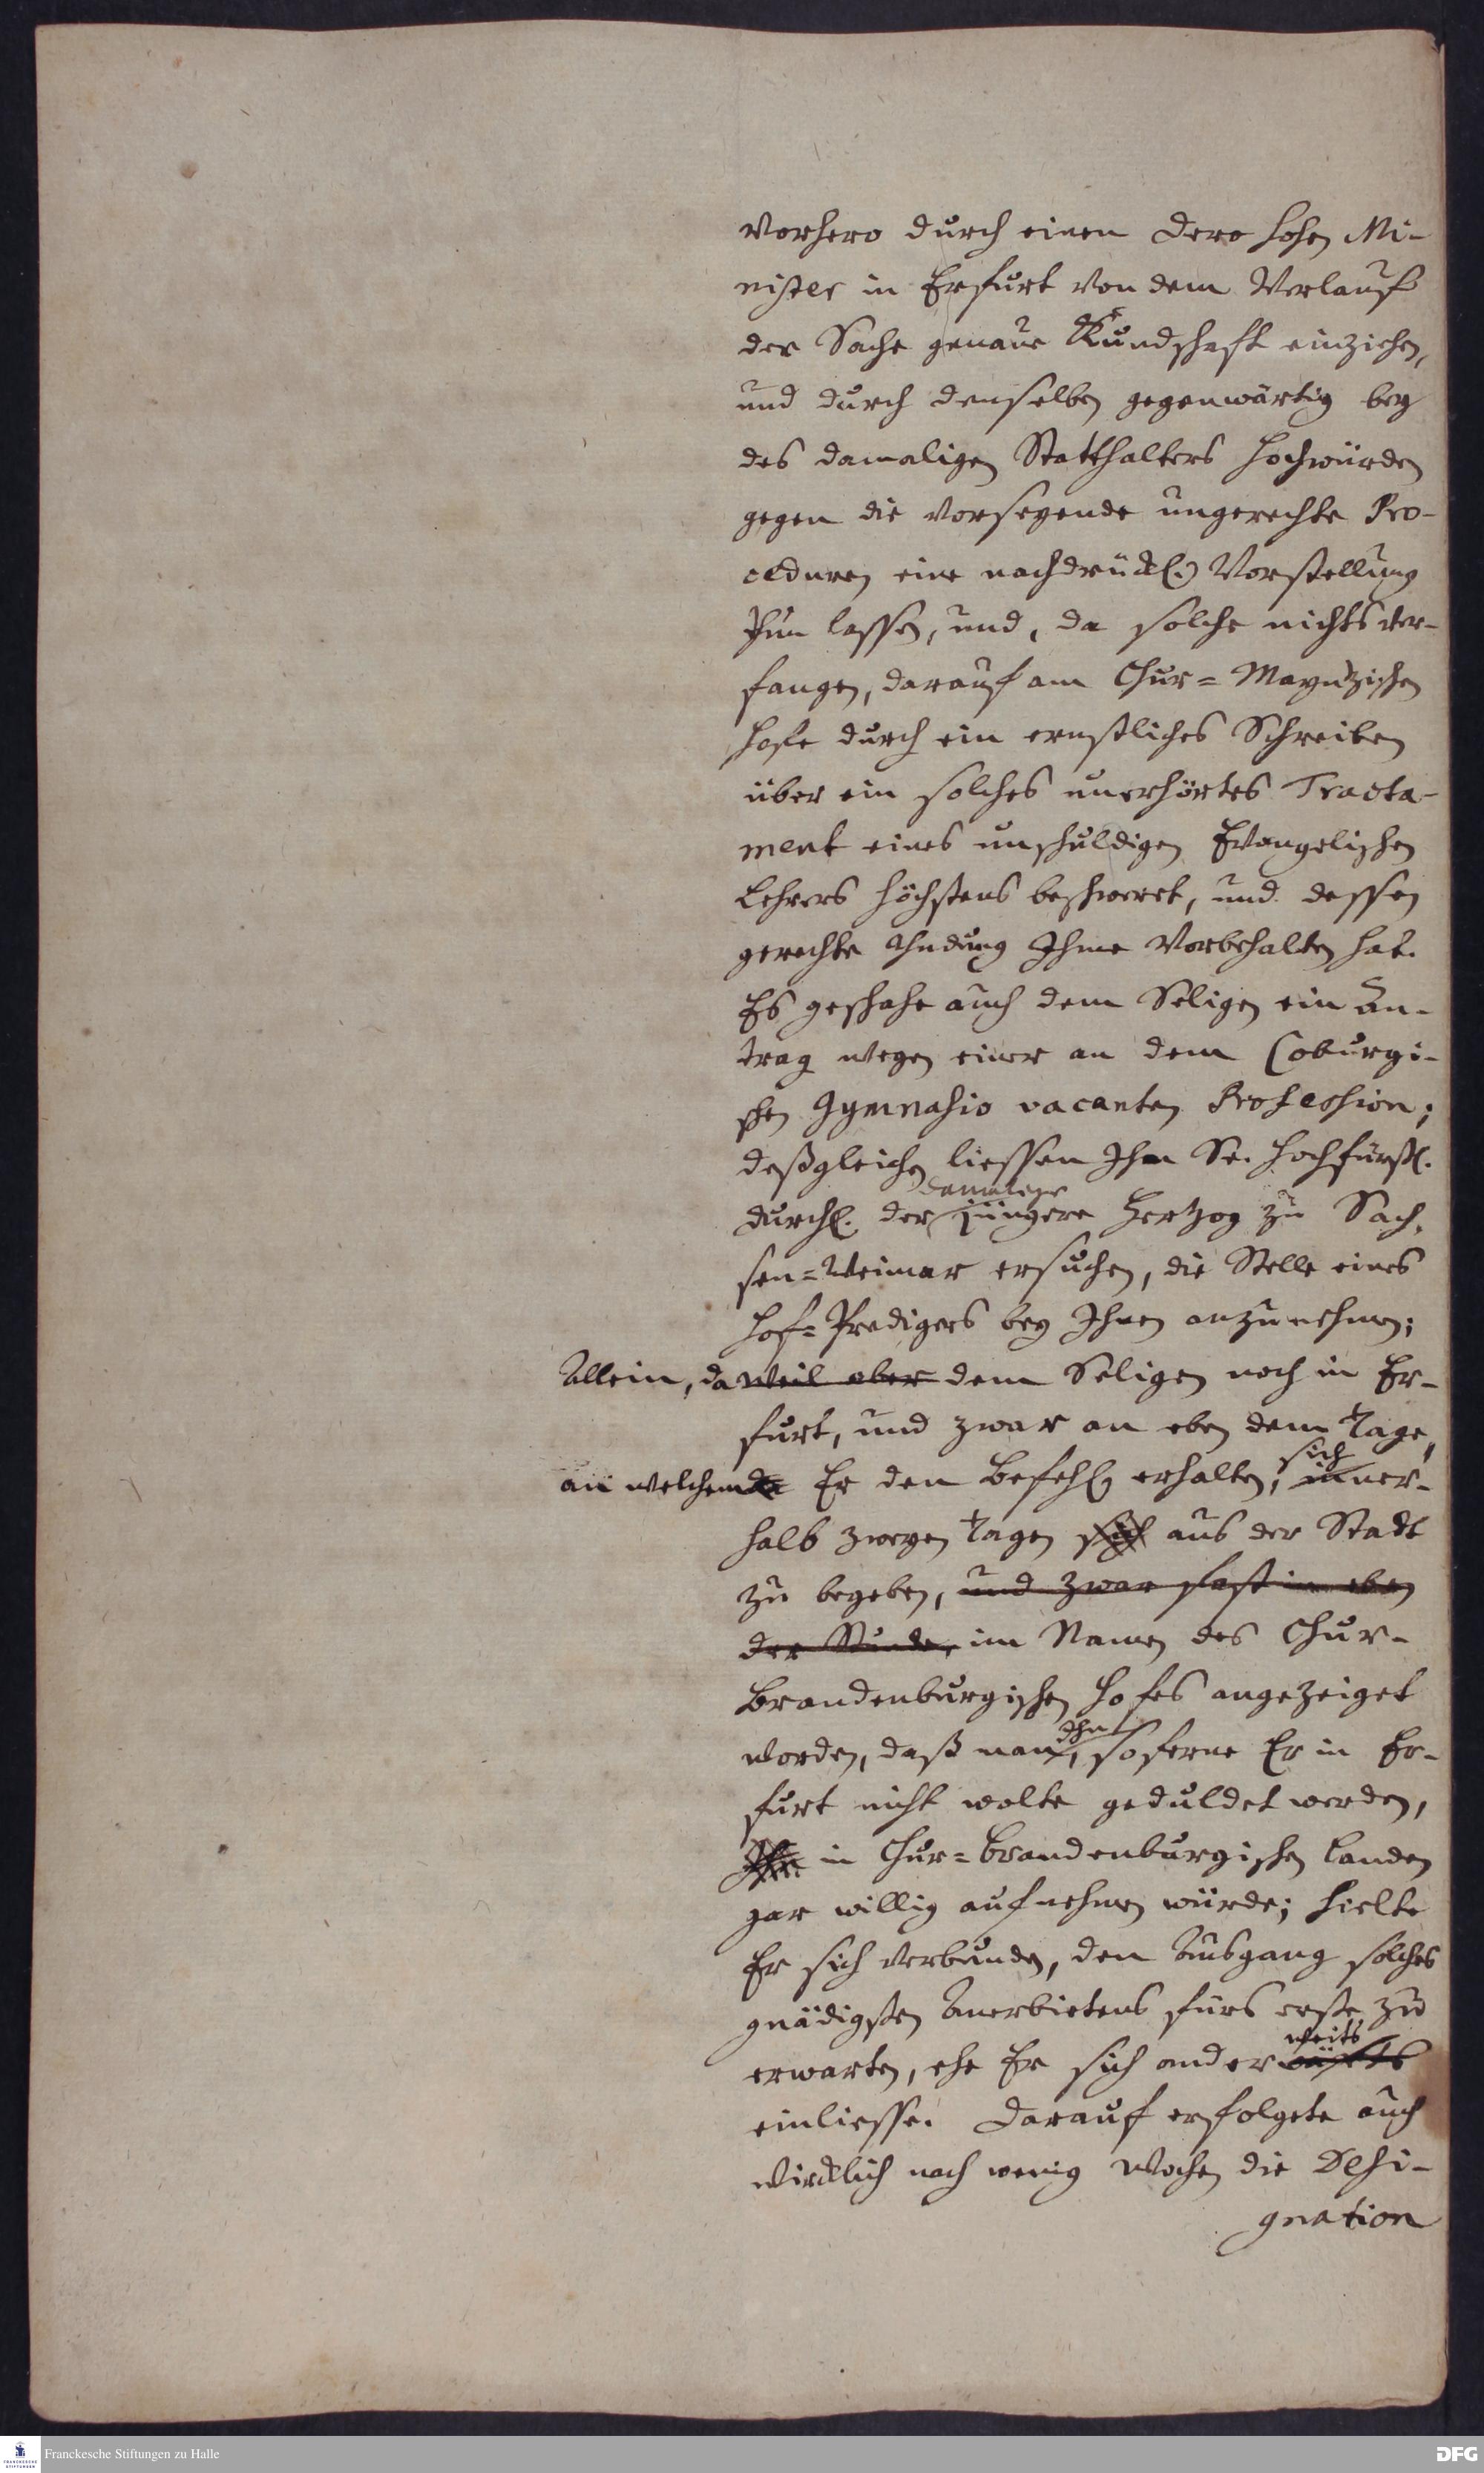 vorhero durch einen Dero hohen Mi-
nister in Erfurt von dem Verlauf
der Sache genaue Kundschaft einziehen,
und durch denselben gegenwärtig bey
des damaligen Statthalters Hochwürden
gegen die vorseyende ungerechte Pro-
ceduren eine nachdrückl. Vorstellung
thun lassen, und, da solche nichts ver-
fangen, darauf am Chur=Mayntzischen
Hofe durch ein ernstliches Schreiben
über ein solches unerhörtes Tracta-
ment eines unschuldigen Evangelischen
Lehrers höchstens beschweret, und dessen
gerechte Ahndung Ihme vorbehalten hat.
Es geschahe auch dem Seligen ein An-
trag wegen einer an dem Coburgi-
schen Gymnasio vacanten Profession;
deßgleichen liessen Ihm Se. Hochfürstl.
damalige
Durchl. der jüngere Hertzog zu Sach-
sen=Weimar ersuchen, die Stelle eines
Hof=Predigers bey Ihnen anzunehmen;
Allein, da weil aber dem Seligen noch in Er-
furt, und zwar an eben dem Tage,
sich
an welchem da Er den Befehl erhalten, inner-
halb zweyen Tagen sich aus der Stadt
zu begeben, und zwar fast in eben
der Stunde, im Namen des Chur-
Brandenburgischen Hofes angezeiget
Ihn
worden, daß man, soferne Er in Er-
furt nicht wolte geduldet werden,
Ihn in Chur=Brandenburgischen Landen
gar willig aufnehmen würde; hielte
Er sich verbunden, den Ausgang solches
gnädigsten Anerbietens fürs erste zu
weits
erwarten, ehe Er sich anderwärts
einliesse. Darauf erfolgete auch
wircklich nach wenig Wochen die Desi-
gnation
Franckesche Stiftungen zu Halle
DFG